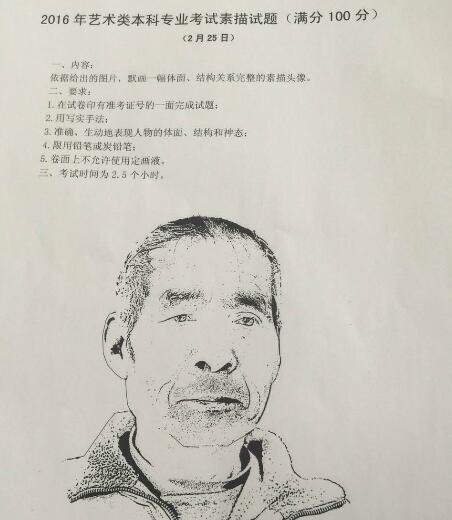 2016 年艺术类本科专业考试素描试题（满分 100 分）
（2 月 25 日）
一、内容：
依据给出的图片，默画一幅体面、结构关系完整的素描头像。
二、要求：
1.在试卷印有准考证号的一面完成试题；
2.用写实手法；
3.准确、生动地表现人物的体面、结构和神态；
4.限用铅笔或炭铅笔；
5.卷面上不允许使用定画液。
三、考试时间为 2.5 个小时。